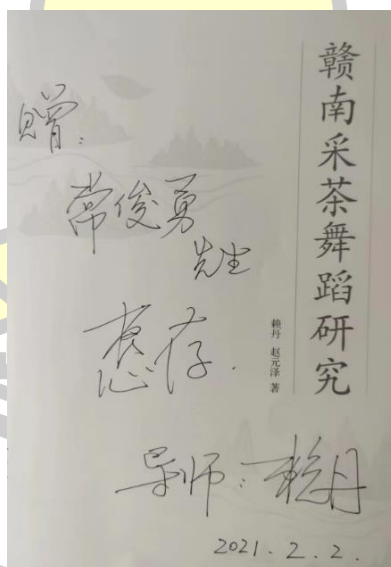 赣南采茶舞蹈研究
赖丹 赵元泽 著
赠:
常俊勇
先生
惠存.
导师:赖丹
2021.2.2.